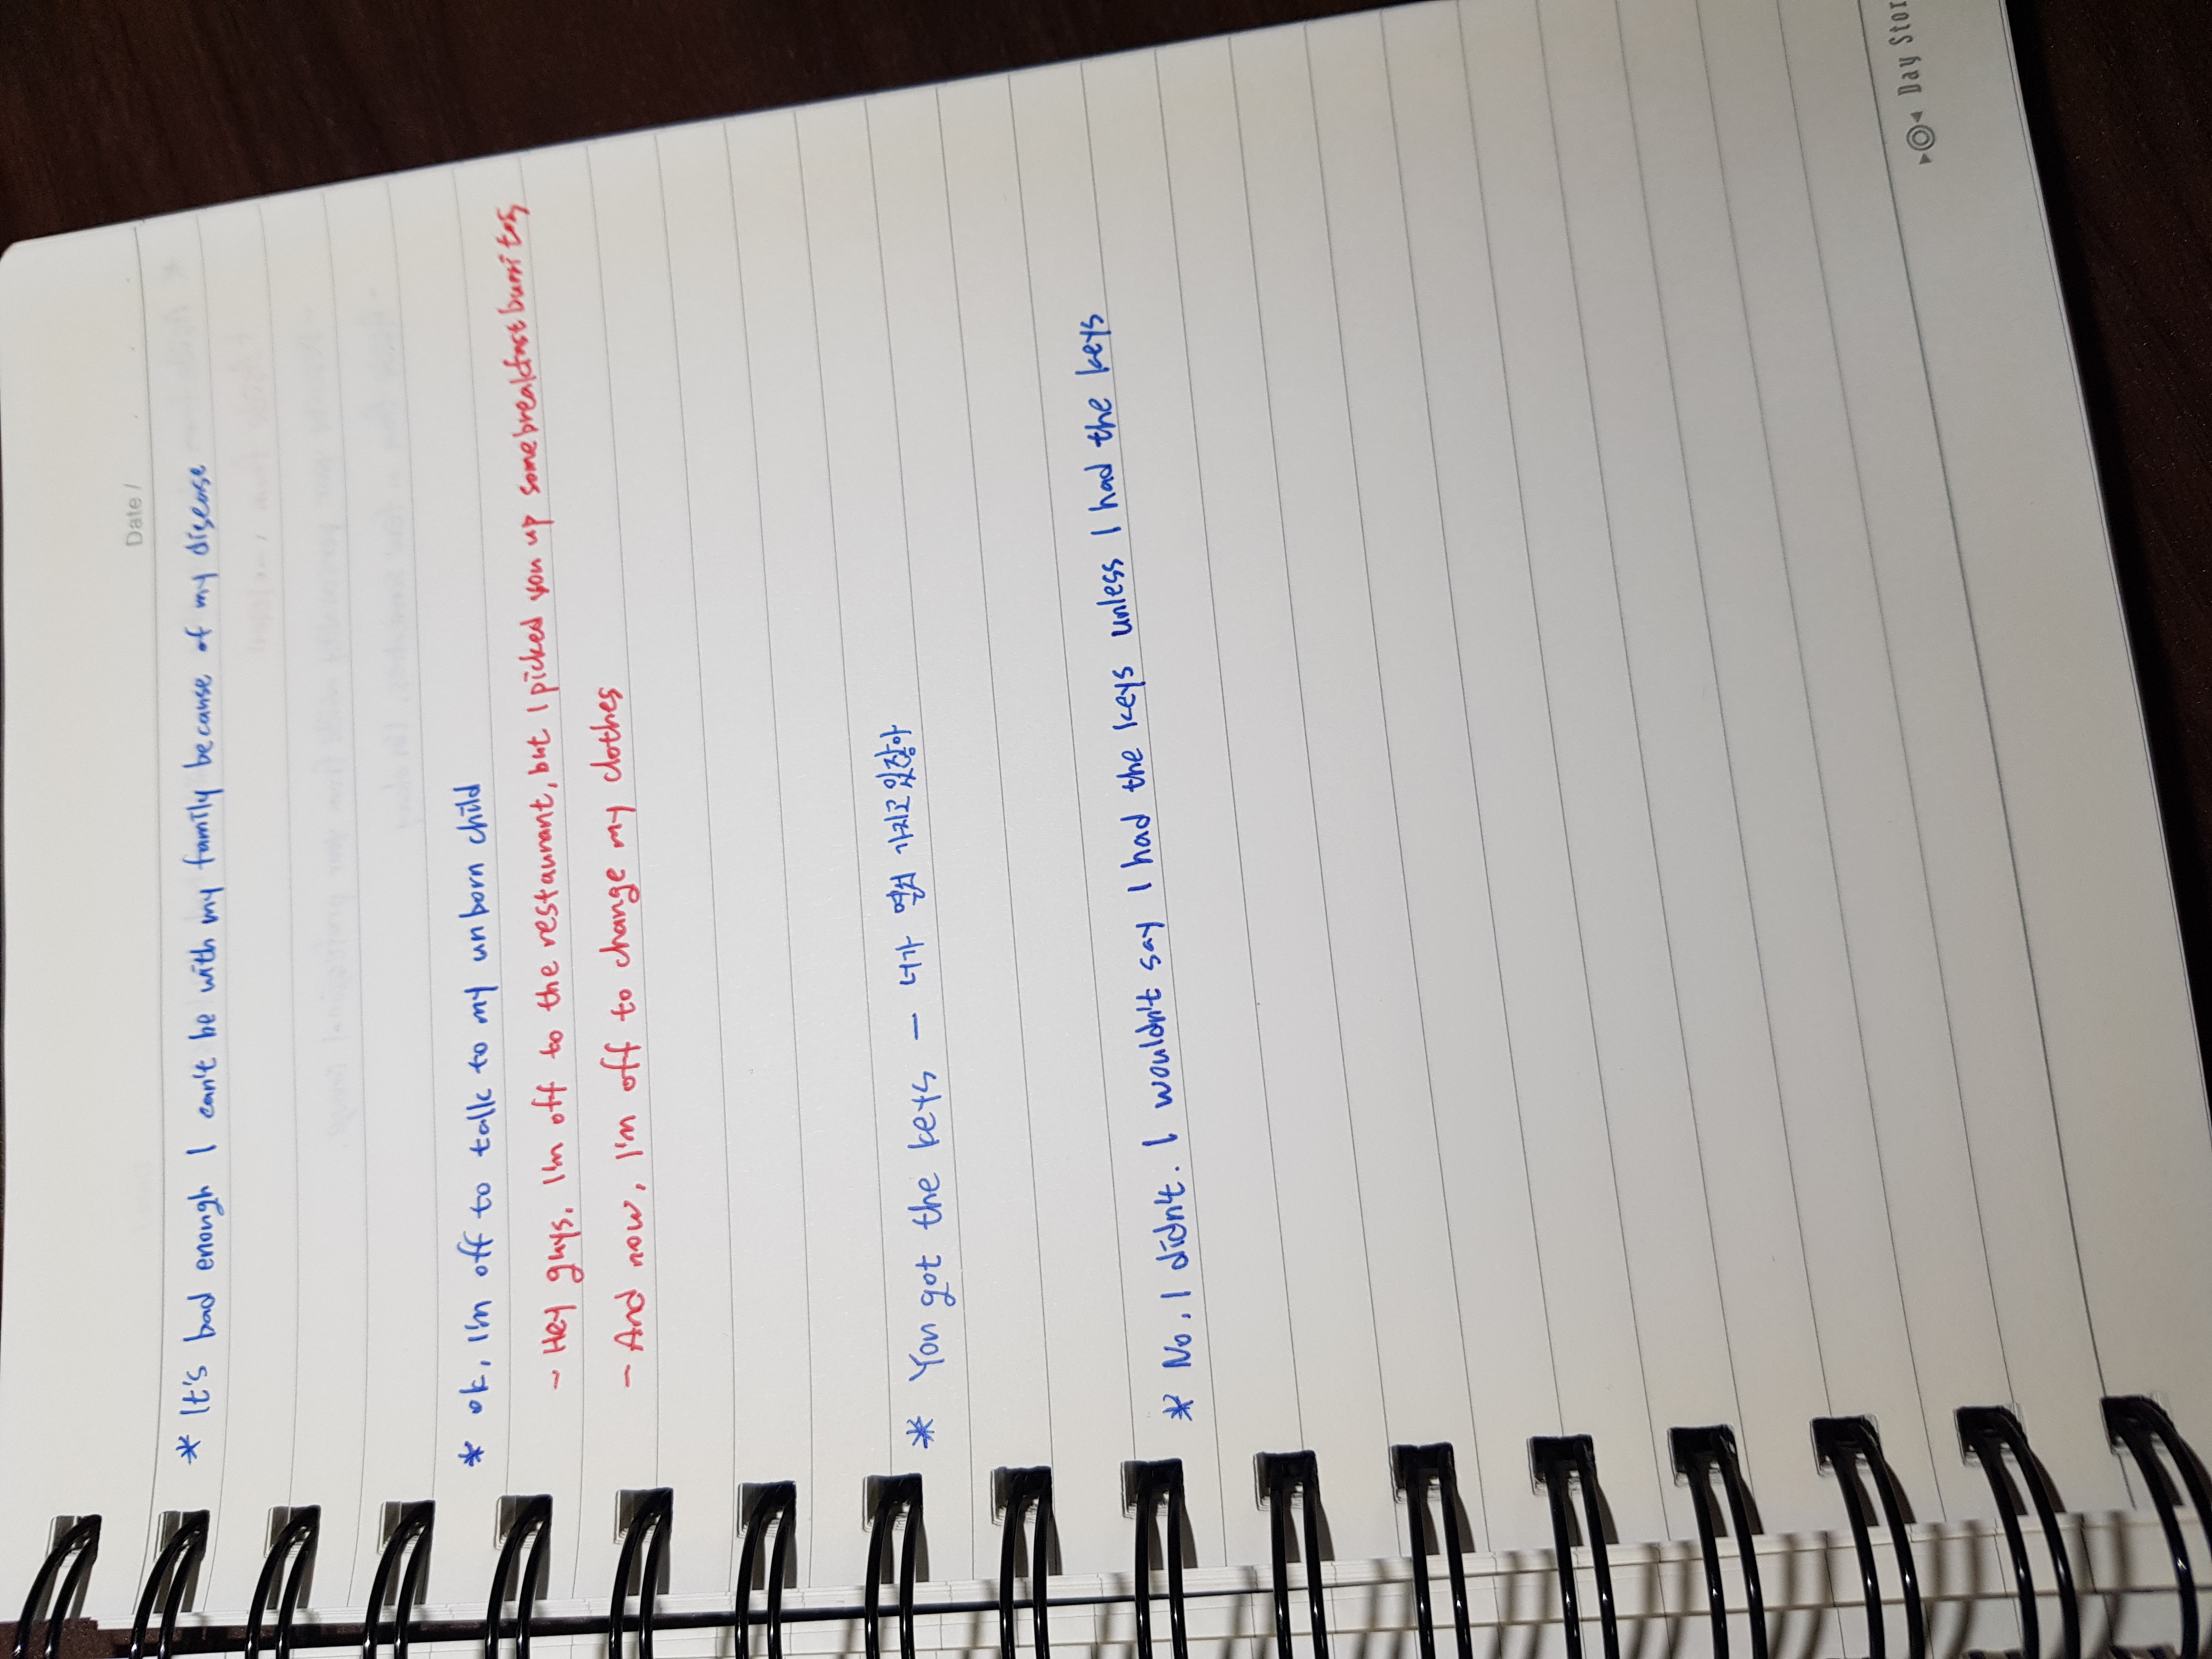 Date /
* It's bad enough I can't be with my family because of my disease
* ok, I'm off to talk to my unborn child
- Hey guys, I'm off to the restaurant, but I picked you up somebreakfastburritos
- And now, I'm off to change my clothes
* You got the keys - 너가 열쇠 가지고있잖아
* No, I didn't. I wouldn't say I had the keys unless I had the keys
Day Stor